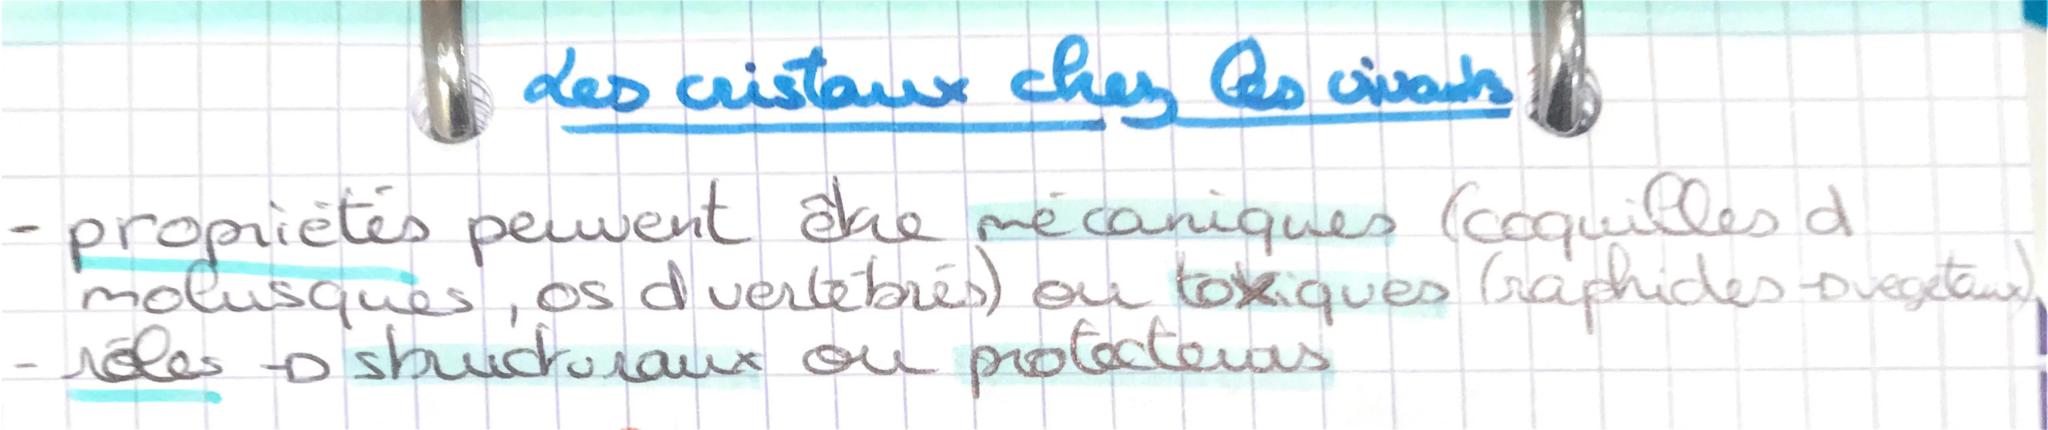 Les cristaux chez les vivants
- propriétés peuvent être mécaniques (coquilles d
molusques, os d vertébrés) ou toxiques (raphides → vegetaux)
- rôles → structuraux ou protecteurs